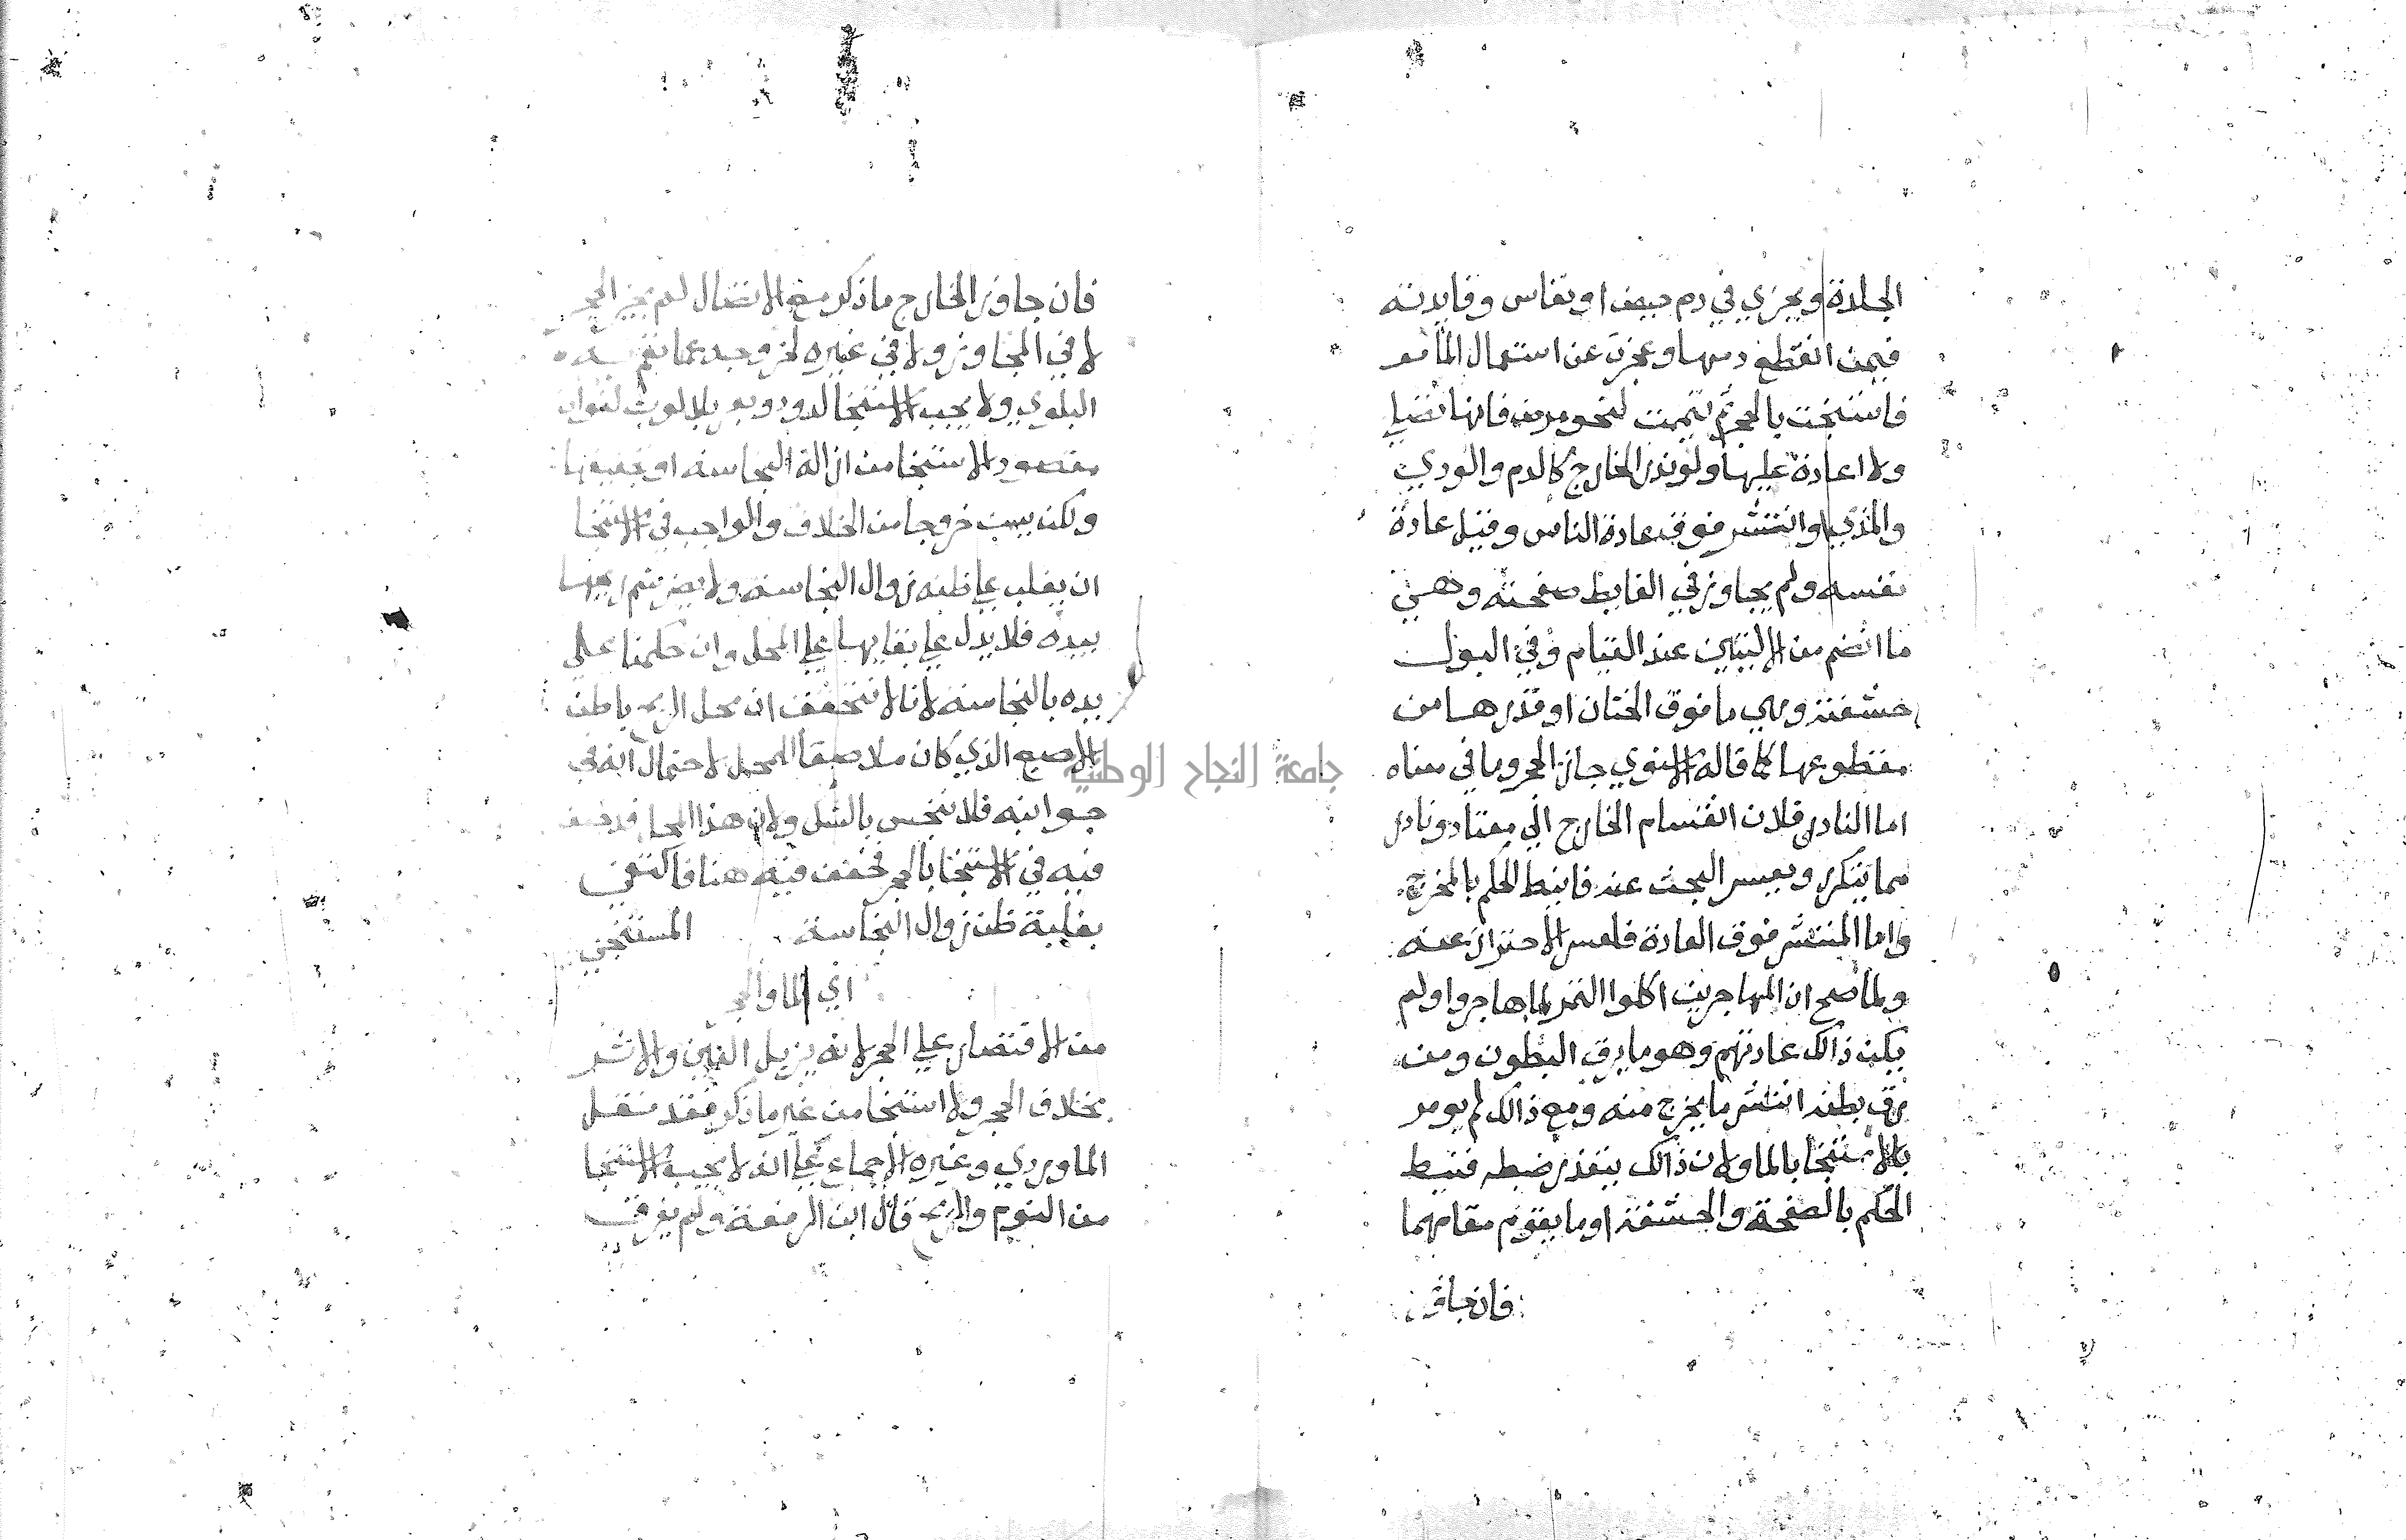 الجلدة ويجزي في دم حيض او نفاس وفايدته
فيمن انقطع دمها وعجزت عن استعمال الما
فاستنجت بالحجر ثم تيممت لنحو مرض فانها تصلي
ولا اعادة عليها ولو ندر الخارج كالدم والودي
والمذي او انتشر فوق عادة الناس وقيل عادة
نفسه ولم يجاوز في الغايط صفحته وهي
ما انضم من الاليتين عند القيام وفي البول
حشفته وهي ما فوق الختان او قدرها من
مقطوعها كما قاله الاسنوي جاز الحجر وما في معناه
اما النادر فلان انقسام الخارج الي معتاد ونادر
مما يتكرر ويعسر البحث عنه فانيط الحكم بالمخرج
واما المنتشر فوق العادة فلعسر الاحتراز عنه
ولما صح ان المهاجرين اكلوا التمر لما هاجروا ولم
يكن ذالك عادتهم وهو مما يرق البطون ومن
رق بطنه انتشر ما يخرج منه ومع ذالك لم يومر
بالاستنجا بالما ولان ذالك يتعذر ضبطه فنيط
الحكم بالصفحة والحشفة او ما يقوم مقامهما
فان جاوز
فان جاوز الخارج ما ذكر مع الاتصال لم يجز الحجر
لا في المجاوز ولا في غيره لخروجه عما تعم به
البلوي ولا يجب الاستنجا لدود وبعر بلا لوث لفوات
مقصود الاستنجا من ازالة النجاسة او تخفيفها
ولكن يسن خروجا من الخلاف والواجب في الاستنجا
ان يغلب علي ظنه زوال النجاسة ولا يضر شم ريحها
بيده فلا يدل علي بقايها علي المحل وان حكمنا علي
يده بالنجاسة لانا لا نتحقق ان محل الريح باطن
الاصبع الذي كان ملاصقا للمحل لاحتمال انه في
جوانبه فلا تنجس بالشك ولان هذا المحل قد خفف
فيه في الاستنجا بالحجر فخفف فيه هنا فاكتفي
بغلبة ظن زوال النجاسة المستنجي
اي الما والحجر
من الاقتصار علي الحجر لانه يزيل العين والاثر
بخلاف الحجر ولا استنجا من غير ما ذكر فقد نقل
الماوردي وغيره الاجماع علي انه لا يجب الاستنجا
من النوم والريح قال ابن الرفعة ولم يفرق
جامعة النجاح الوطنية